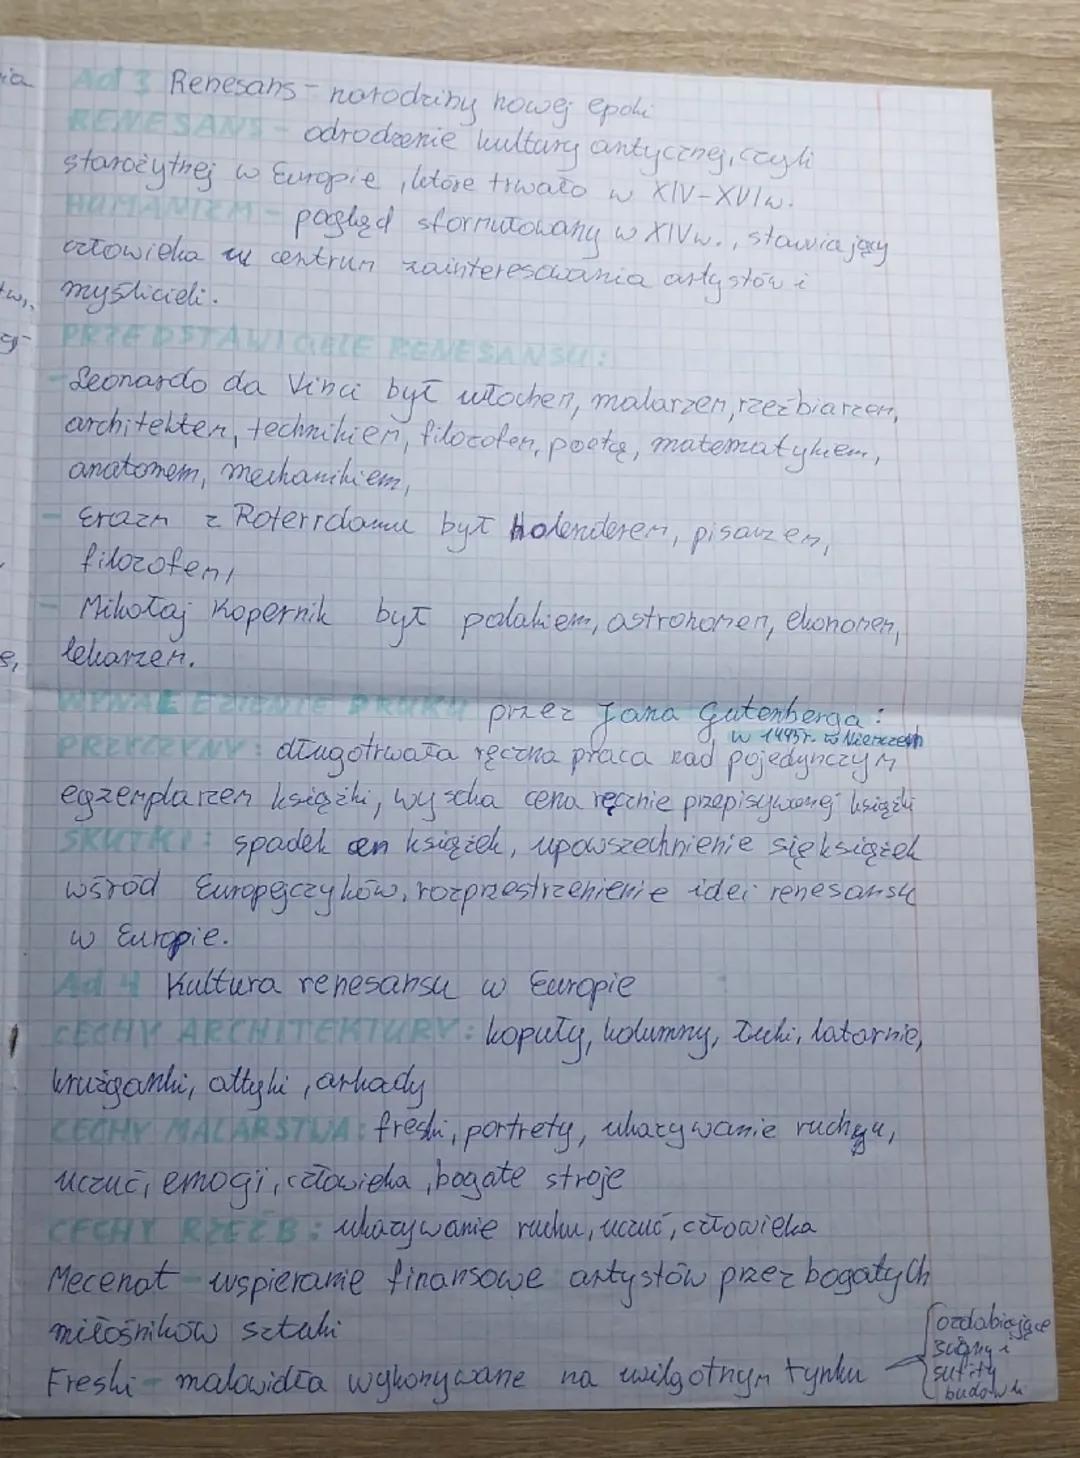 Ad 3 Renesans - narodziny nowej epoki
RENESANS - odrodzenie kultury antycznej, czyli
starożytnej w Europie, które trwało w XIV-XVI w.
HUMANIZM - pogląd sformułowany w XIV w., stawiający
człowieka w centrum zainteresowania artystów i
myślicieli.
PRZEDSTAWICIELE RENESANSU:
- Leonardo da Vinci był włochem, malarzem, rzeźbiarzem,
architektem, technikiem, filozofem, poetą, matematykiem,
anatomem, mechanikiem,
- Erazm z Roterrdamu był holenderem, pisarzem,
filozofem,
- Mikołaj Kopernik był polakiem, astronomem, ekonomem,
lekarzem.
WYNALEZIENIE DRUKU przez Jana Gutenberga:
w 1445r. w Niemczech
PRZYCZYNY: długotrwała ręczna praca nad pojedynczym
egzemplarzem książki, wysoka cena ręcznie przepisywanej książki
SKUTKI: spadek cen książek, upowszechnienie się książek
wśród Europejczyków, rozprzestrzenienie idei renesansu
w Europie.
Ad 4 Kultura renesansu w Europie
CECHY ARCHITEKTURY: kopuły, kolumny, łuki, latarnie,
krużganki, attyki, arkady
CECHY MALARSTWA: freski, portrety, ukazywanie ruchu,
uczuć, emogi, człowieka, bogate stroje
CECHY RZEŹB: ukazywanie ruchu, uczuć, człowieka
Mecenat - wspieranie finansowe artystów przez bogatych
miłośników sztuki
Freski - malowidła wykonywane na wilgotnym tynku
ozdabiające
ściany i
sufity
budowli